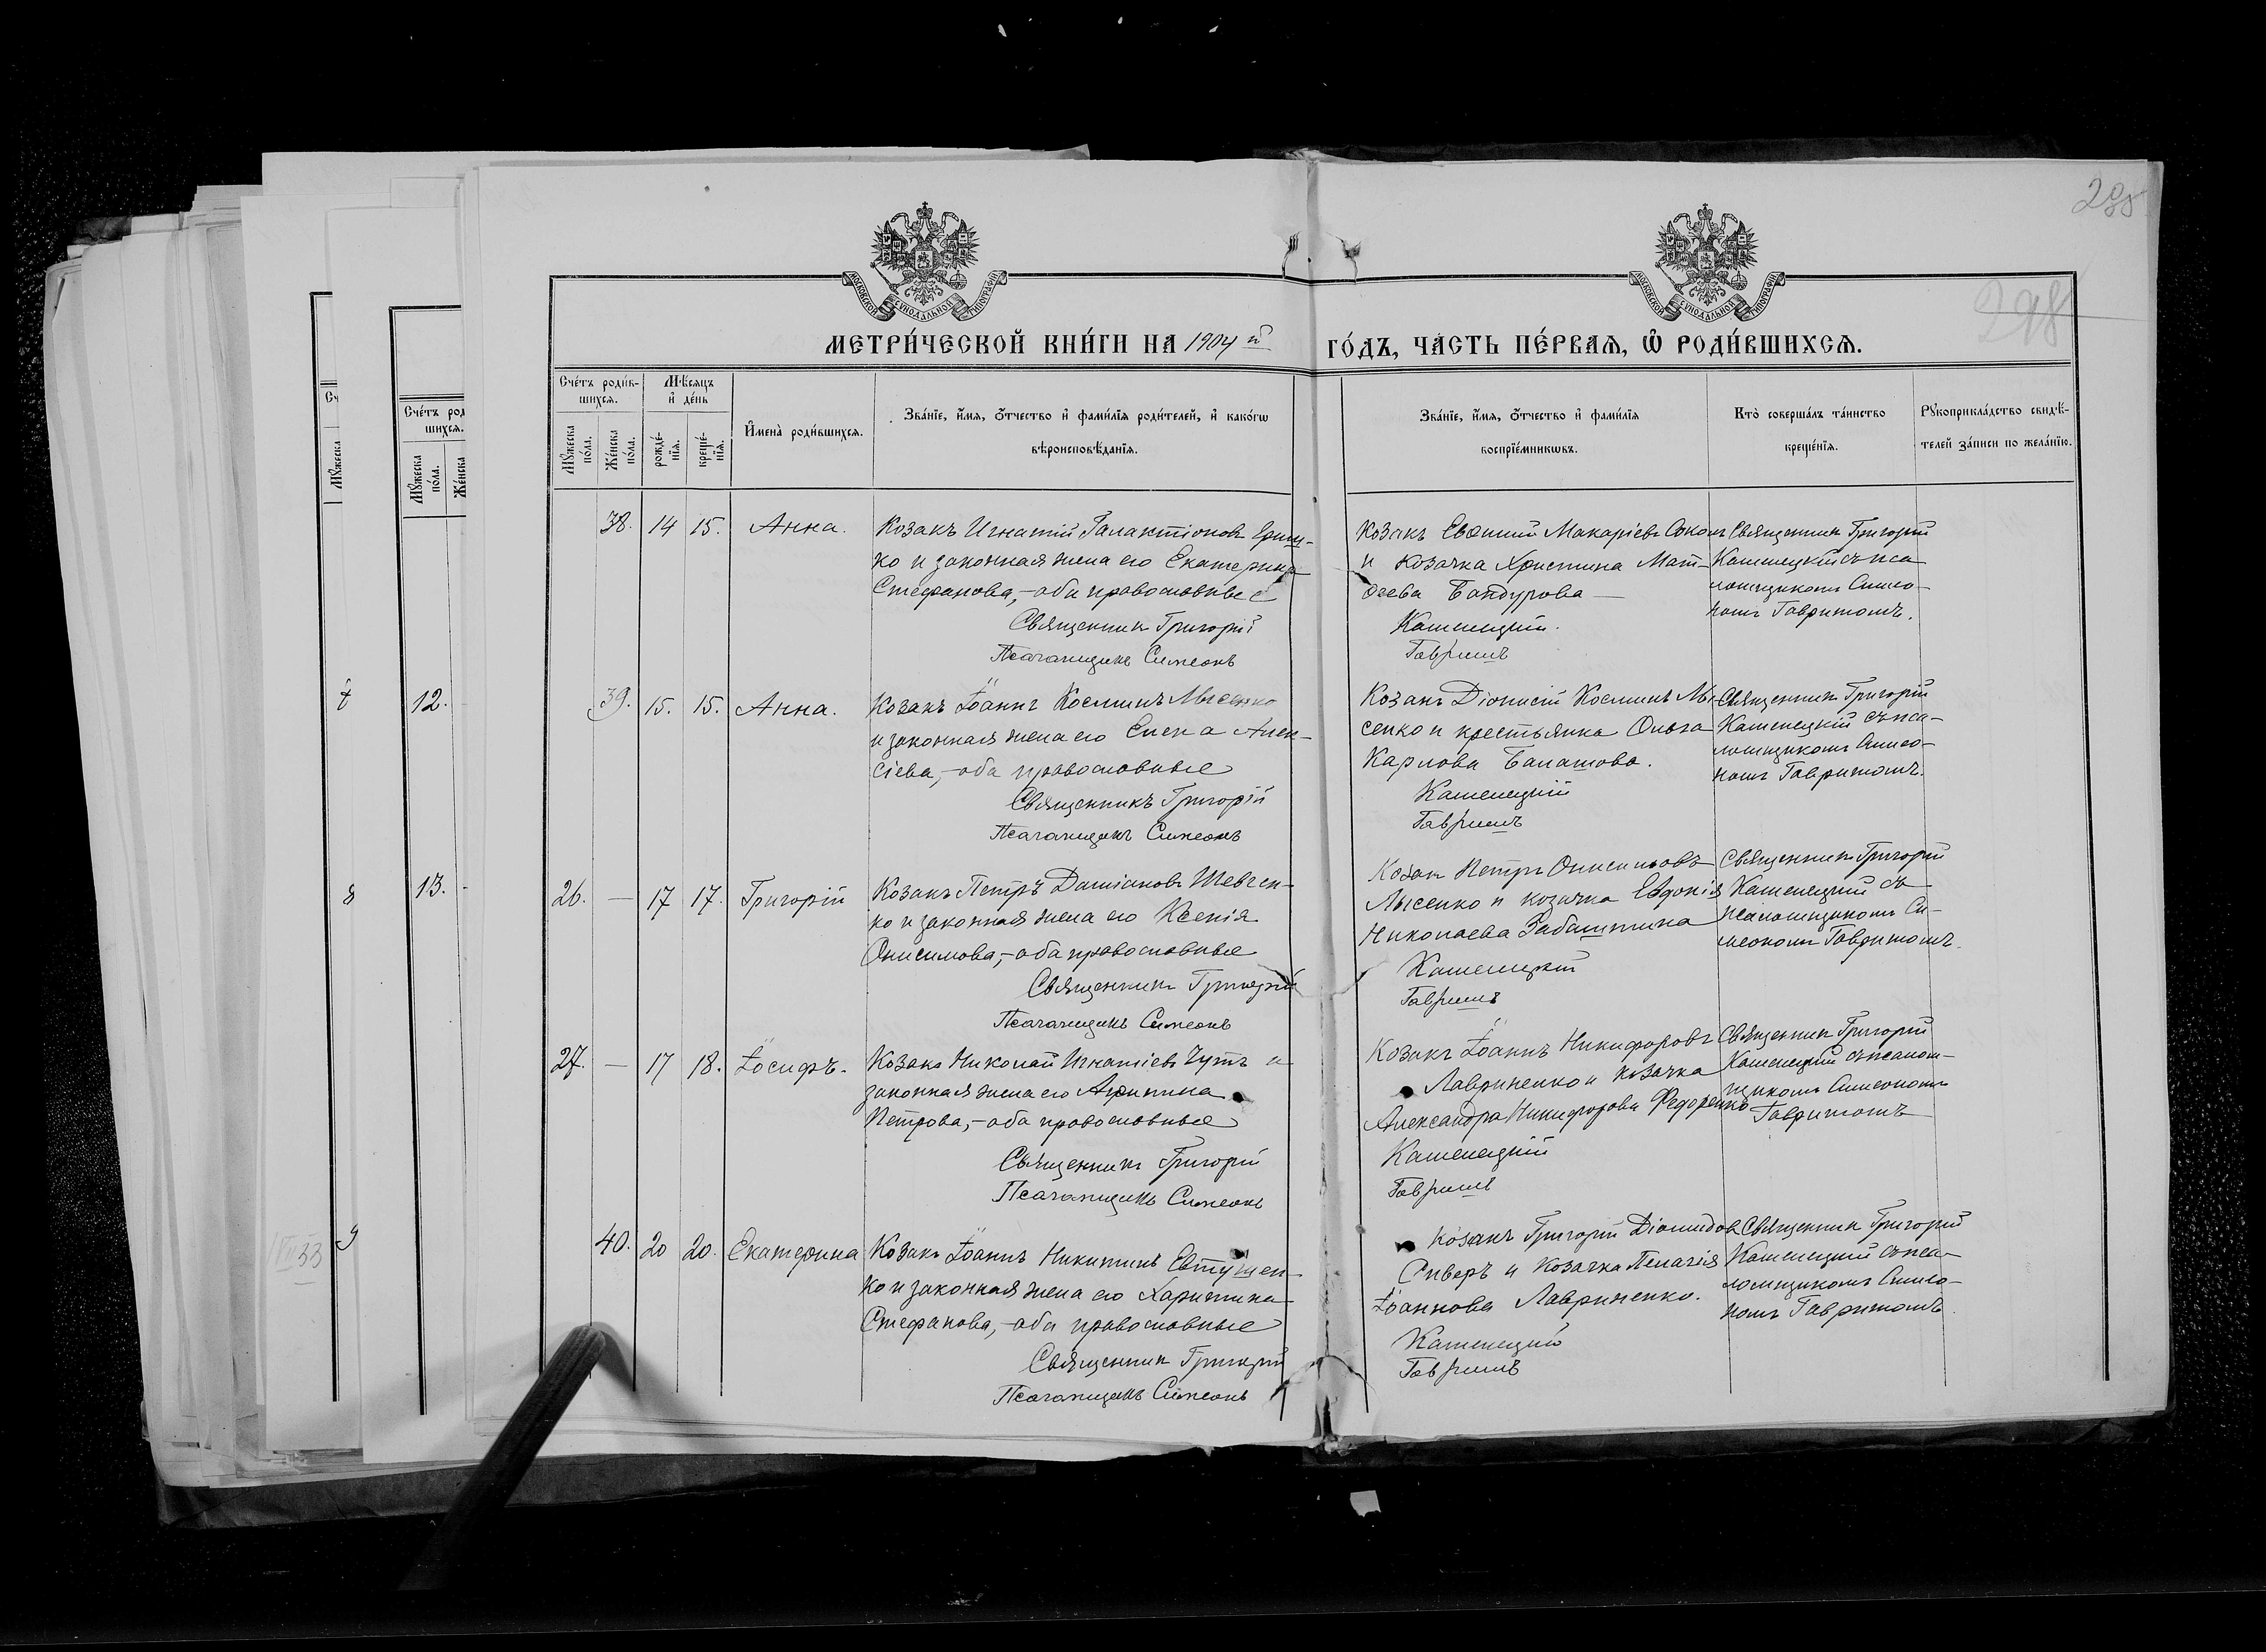 МЕТРИ́ЧЕСКОЙ КНИ́ГИ НА 1904 й ГО́ДЪ, ЧА́СТЬ ПЕ́РВАѦ, Ѽ РОДИ́ВШИХСѦ.
МОСКОВСКОЙ СѴНОДАЛЬНОЙ ТИПОГРАФІИ
МОСКОВСКОЙ СѴНОДАЛЬНОЙ ТИПОГРАФІИ
298
Сче́тъ роди́вшихсѧ.
Мꙋ́жеска по́ла.
Же́нска по́ла.
Мѣ́сѧцъ и҆ де́нь
рожде́нїѧ.
креще́нїѧ.
И҆мена̀ роди́вшихсѧ.
Зва́нїе, и҆́мѧ, ѻ҆́тчество и҆ фами́лїѧ роди́телей, и҆ како́гѡ
вѣроисповѣ́данїѧ.
Зва́нїе, и҆́мѧ, ѻ҆́тчество и҆ фами́лїѧ
воспрїе́мникѡвъ.
Кто̀ соверша́лъ та́инство
креще́нїѧ.
Рꙋкоприкла́дство свидѣ́телей за́писи по жела́нїю.
38. 14 15. Анна.
Козакъ Игнатій Галактіоновъ
ко и законная жена его Екатерина
Стефанова,- оба православные
Священникъ Григорій
Псаломщикъ Симеонъ
Козакъ Евѳимій Макаріевъ Соколъ
и козачка Христина Мат-
ѳеева Бандурова
Каменецкій.
Гавришъ
Священникъ Григорій
Каменецкій съ пса
ломщикомъ Симео-
номъ Гавришомъ.
39. 15. 15. Анна.
Козакъ Іоаннъ Косминъ Лысенко
и законная жена его Елена Алек-
сіева,- оба православные
Священникъ Григорій
Псаломщикъ Симеонъ
Козакъ Діонисій Косминъ Лы-
сенко и крестьянка Ольга
Карпова Балашова.
Каменецкій
Гавришъ
Священникъ Григорій
Каменецкій съ пса-
ломщикомъ Симео-
номъ Гавришомъ.
26. — 17 17. Григорій
Козакъ Петръ Даміановъ Шевчен-
ко и законная жена его Ксенія
Онисимова,- оба православные
Священникъ Григорій
Псаломщикъ Симеонъ
Козакъ Петръ Онисимовъ
Лысенко и козачка Евдокія
Николаева Забаштина
Каменецкій
Гавришъ
Священникъ Григорій
Каменецкій съ
псаломщикомъ Си-
меономъ Гавришомъ.
27. — 17 18. Іосифъ.
Козакъ Николай Игнатіевъ Чутъ и
законная жена его Агрипина
Петрова,- оба православные
Священникъ Григорій
Псаломщикъ Симеонъ
Козакъ Іоаннъ Никифоровъ
Лавриненко и козачка
Александра Никифорова Федоренко
Каменецкій
Гавришъ
Священникъ Григорій
Каменецкій съ псалом-
щикомъ Симеономъ
Гавришомъ
40. 20 20. Екатерина
Козакъ Іоаннъ Никитинъ Евтушен-
ко и законная жена его Харитина
Стефанова,- оба православные
Священникъ Григорій
Псаломщикъ Симеонъ
Козакъ Григорій Діомидовъ
Сиверъ и козачка Пелагія
Іоаннова Лавриненко.
Каменецкій
Гавришъ
Священникъ Григорій
Каменецкій съ пса-
ломщикомъ Симео-
номъ Гавришомъ.
Сче́тъ род
шихсѧ.
Мꙋ́жеска по́ла.
Же́нска
12.
13.